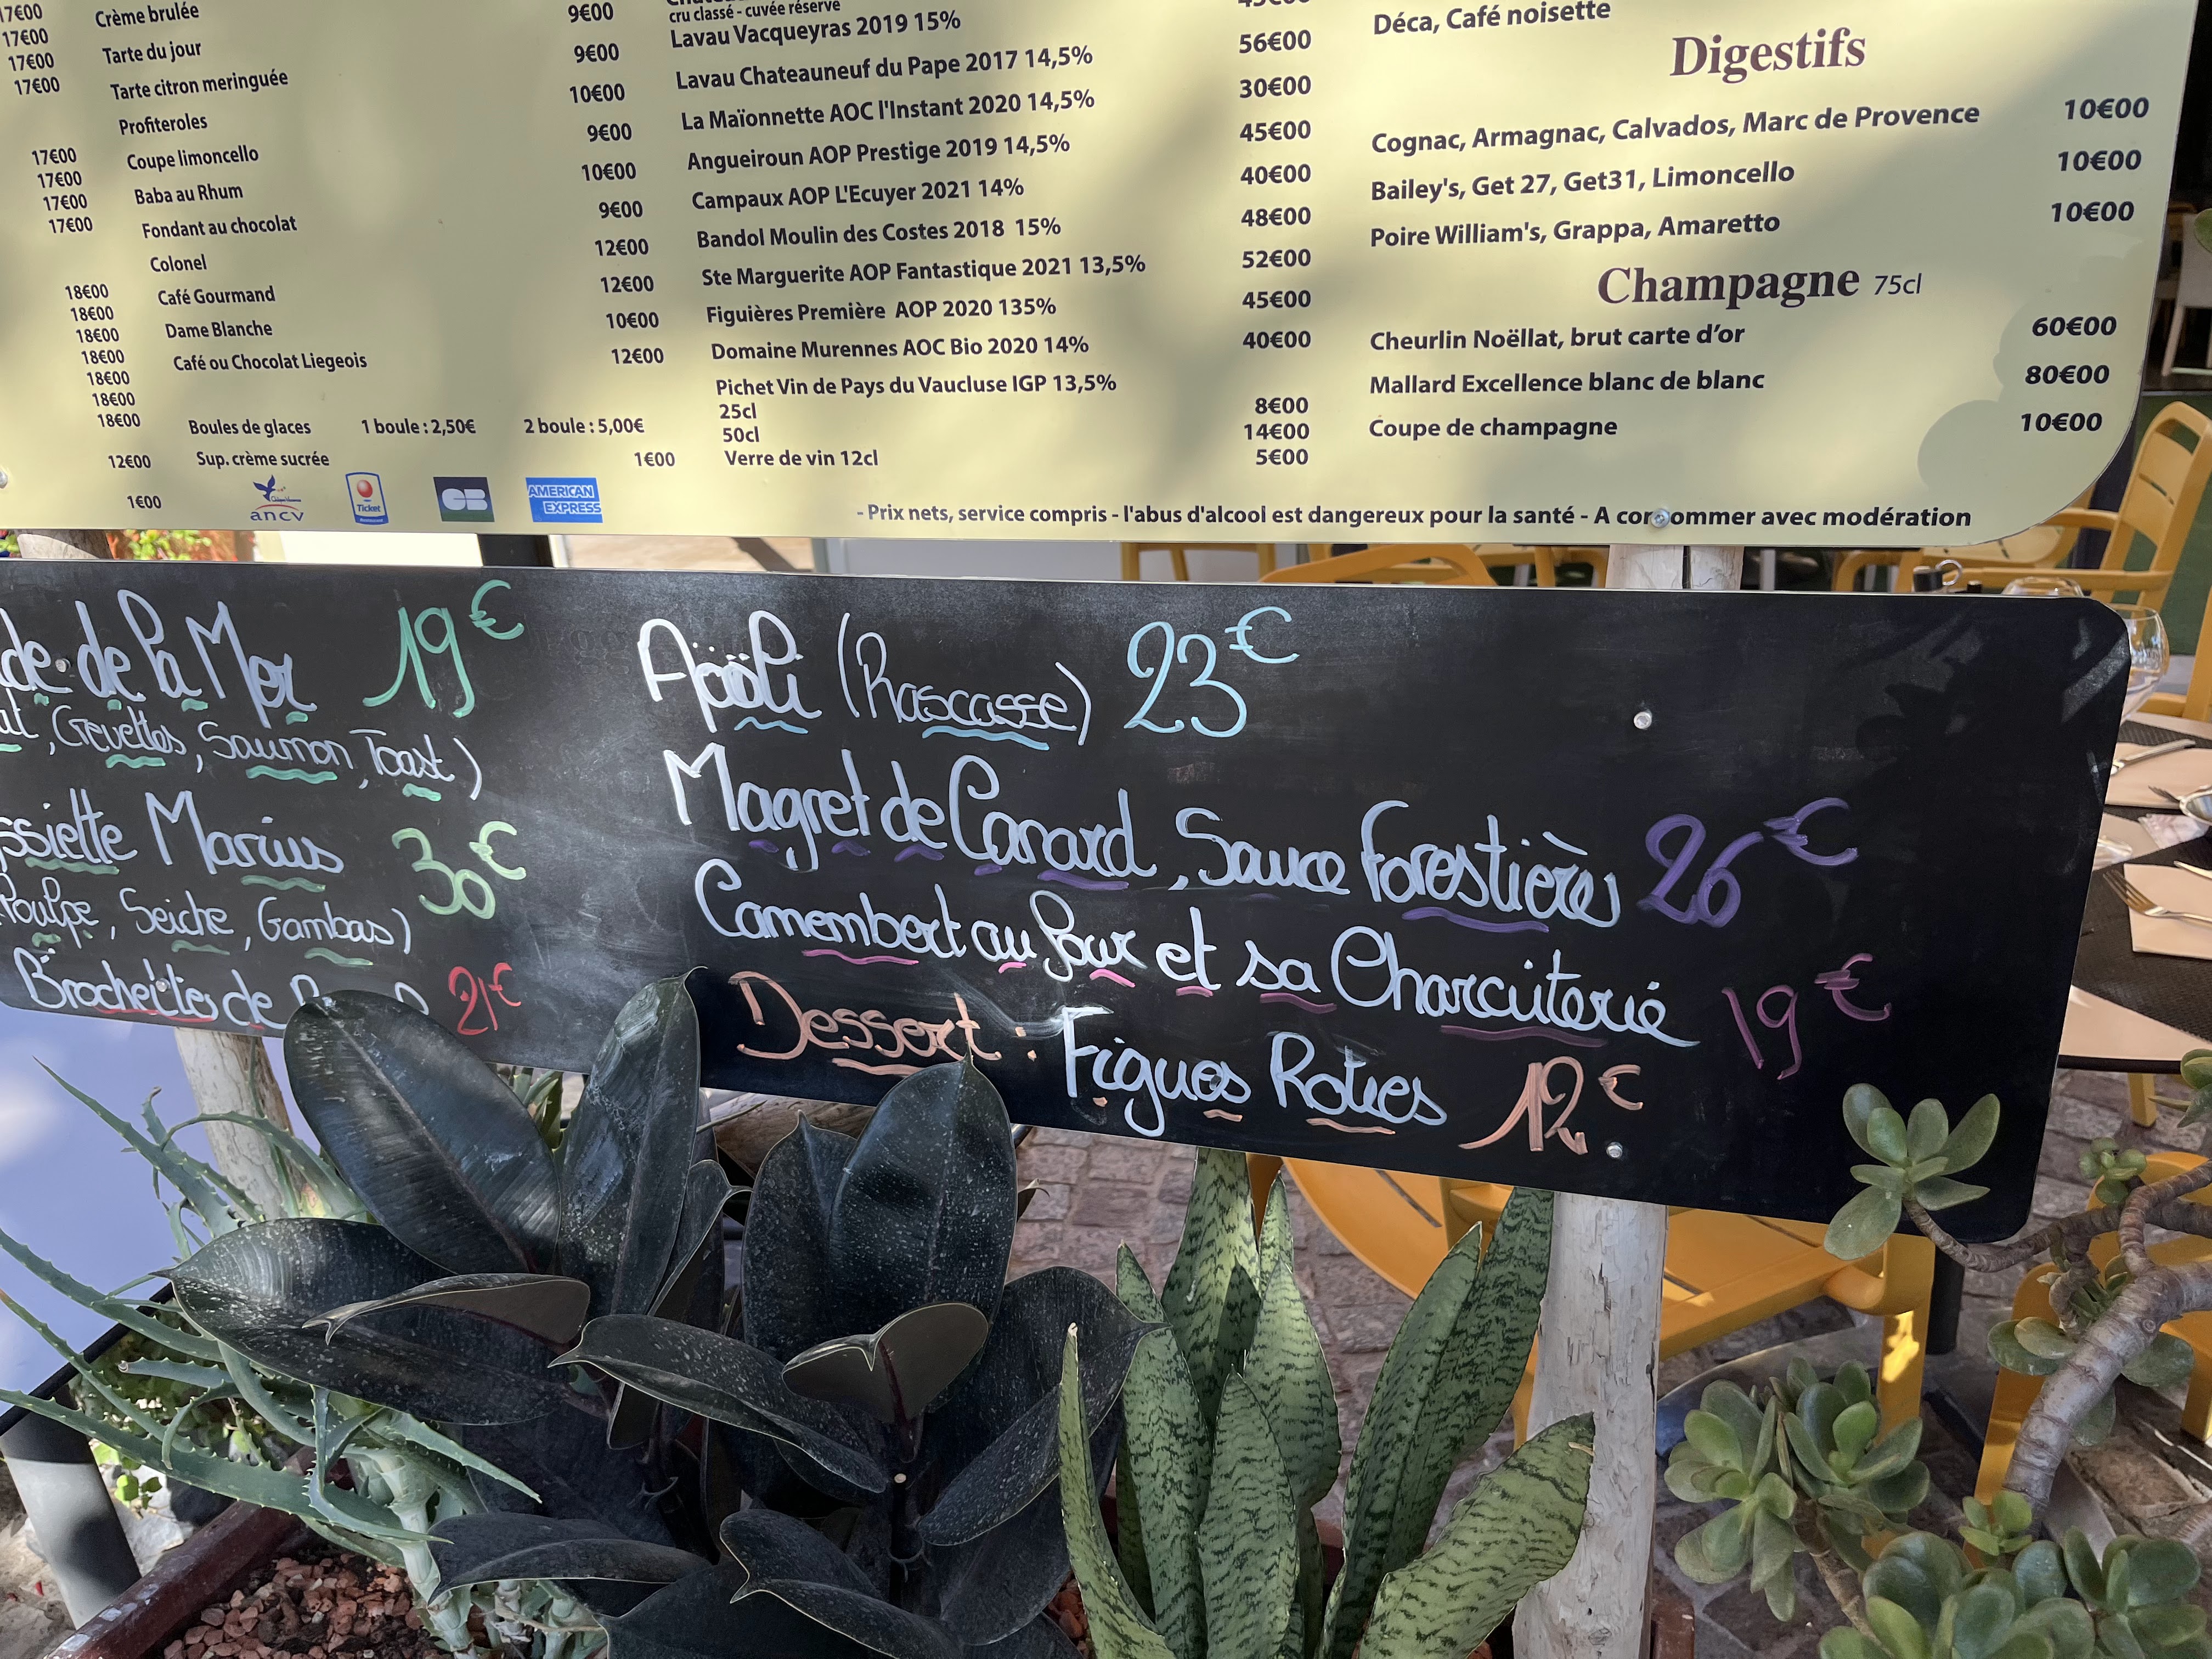 17€00
17€00
17€00
17€00
17€00
17€00
17€00
17€00
18€00
18€00
18€00
18€00
18€00
18€00
18€00
12€00
1€00
Crème brulée 9€00
Tarte du jour 9€00
Tarte citron meringuée 10€00
Profiteroles 9€00
Coupe limoncello 10€00
Baba au Rhum 9€00
Fondant au chocolat 12€00
Colonel 12€00
Café Gourmand 10€00
Dame Blanche 12€00
Café ou Chocolat Liegeois
Boules de glaces 1 boule : 2,50€ 2 boule : 5,00€
Sup. crème sucrée 1€00
ancv
Ticket
CB
AMERICAN EXPRESS
cru classé - cuvée réserve
Lavau Vacqueyras 2019 15% 56€00
Lavau Chateauneuf du Pape 2017 14,5% 30€00
La Maïonnette AOC l'Instant 2020 14,5% 45€00
Angueiroun AOP Prestige 2019 14,5% 40€00
Campaux AOP L'Ecuyer 2021 14% 48€00
Bandol Moulin des Costes 2018 15% 52€00
Ste Marguerite AOP Fantastique 2021 13,5% 45€00
Figuières Première AOP 2020 135% 40€00
Domaine Murennes AOC Bio 2020 14%
Pichet Vin de Pays du Vaucluse IGP 13,5%
25cl 8€00
50cl 14€00
Verre de vin 12cl 5€00
Déca, Café noisette
Digestifs
Cognac, Armagnac, Calvados, Marc de Provence 10€00
Bailey's, Get 27, Get31, Limoncello 10€00
Poire William's, Grappa, Amaretto 10€00
Champagne 75cl
Cheurlin Noëllat, brut carte d'or 60€00
Mallard Excellence blanc de blanc 80€00
Coupe de champagne 10€00
- Prix nets, service compris - l'abus d'alcool est dangereux pour la santé - A consommer avec modération
de de la Mer 19€
, Crevettes, Saumon, Toast)
ssiette Marius 30€
Poulpe, Seiche, Gambas)
Brochettes de 21€
Aïoli (Rascasse) 23€
Magret de Canard, Sauce Forestière 26€
Camembert au Four et sa Charcuterie 19€
Dessert : Figues Roties 12€